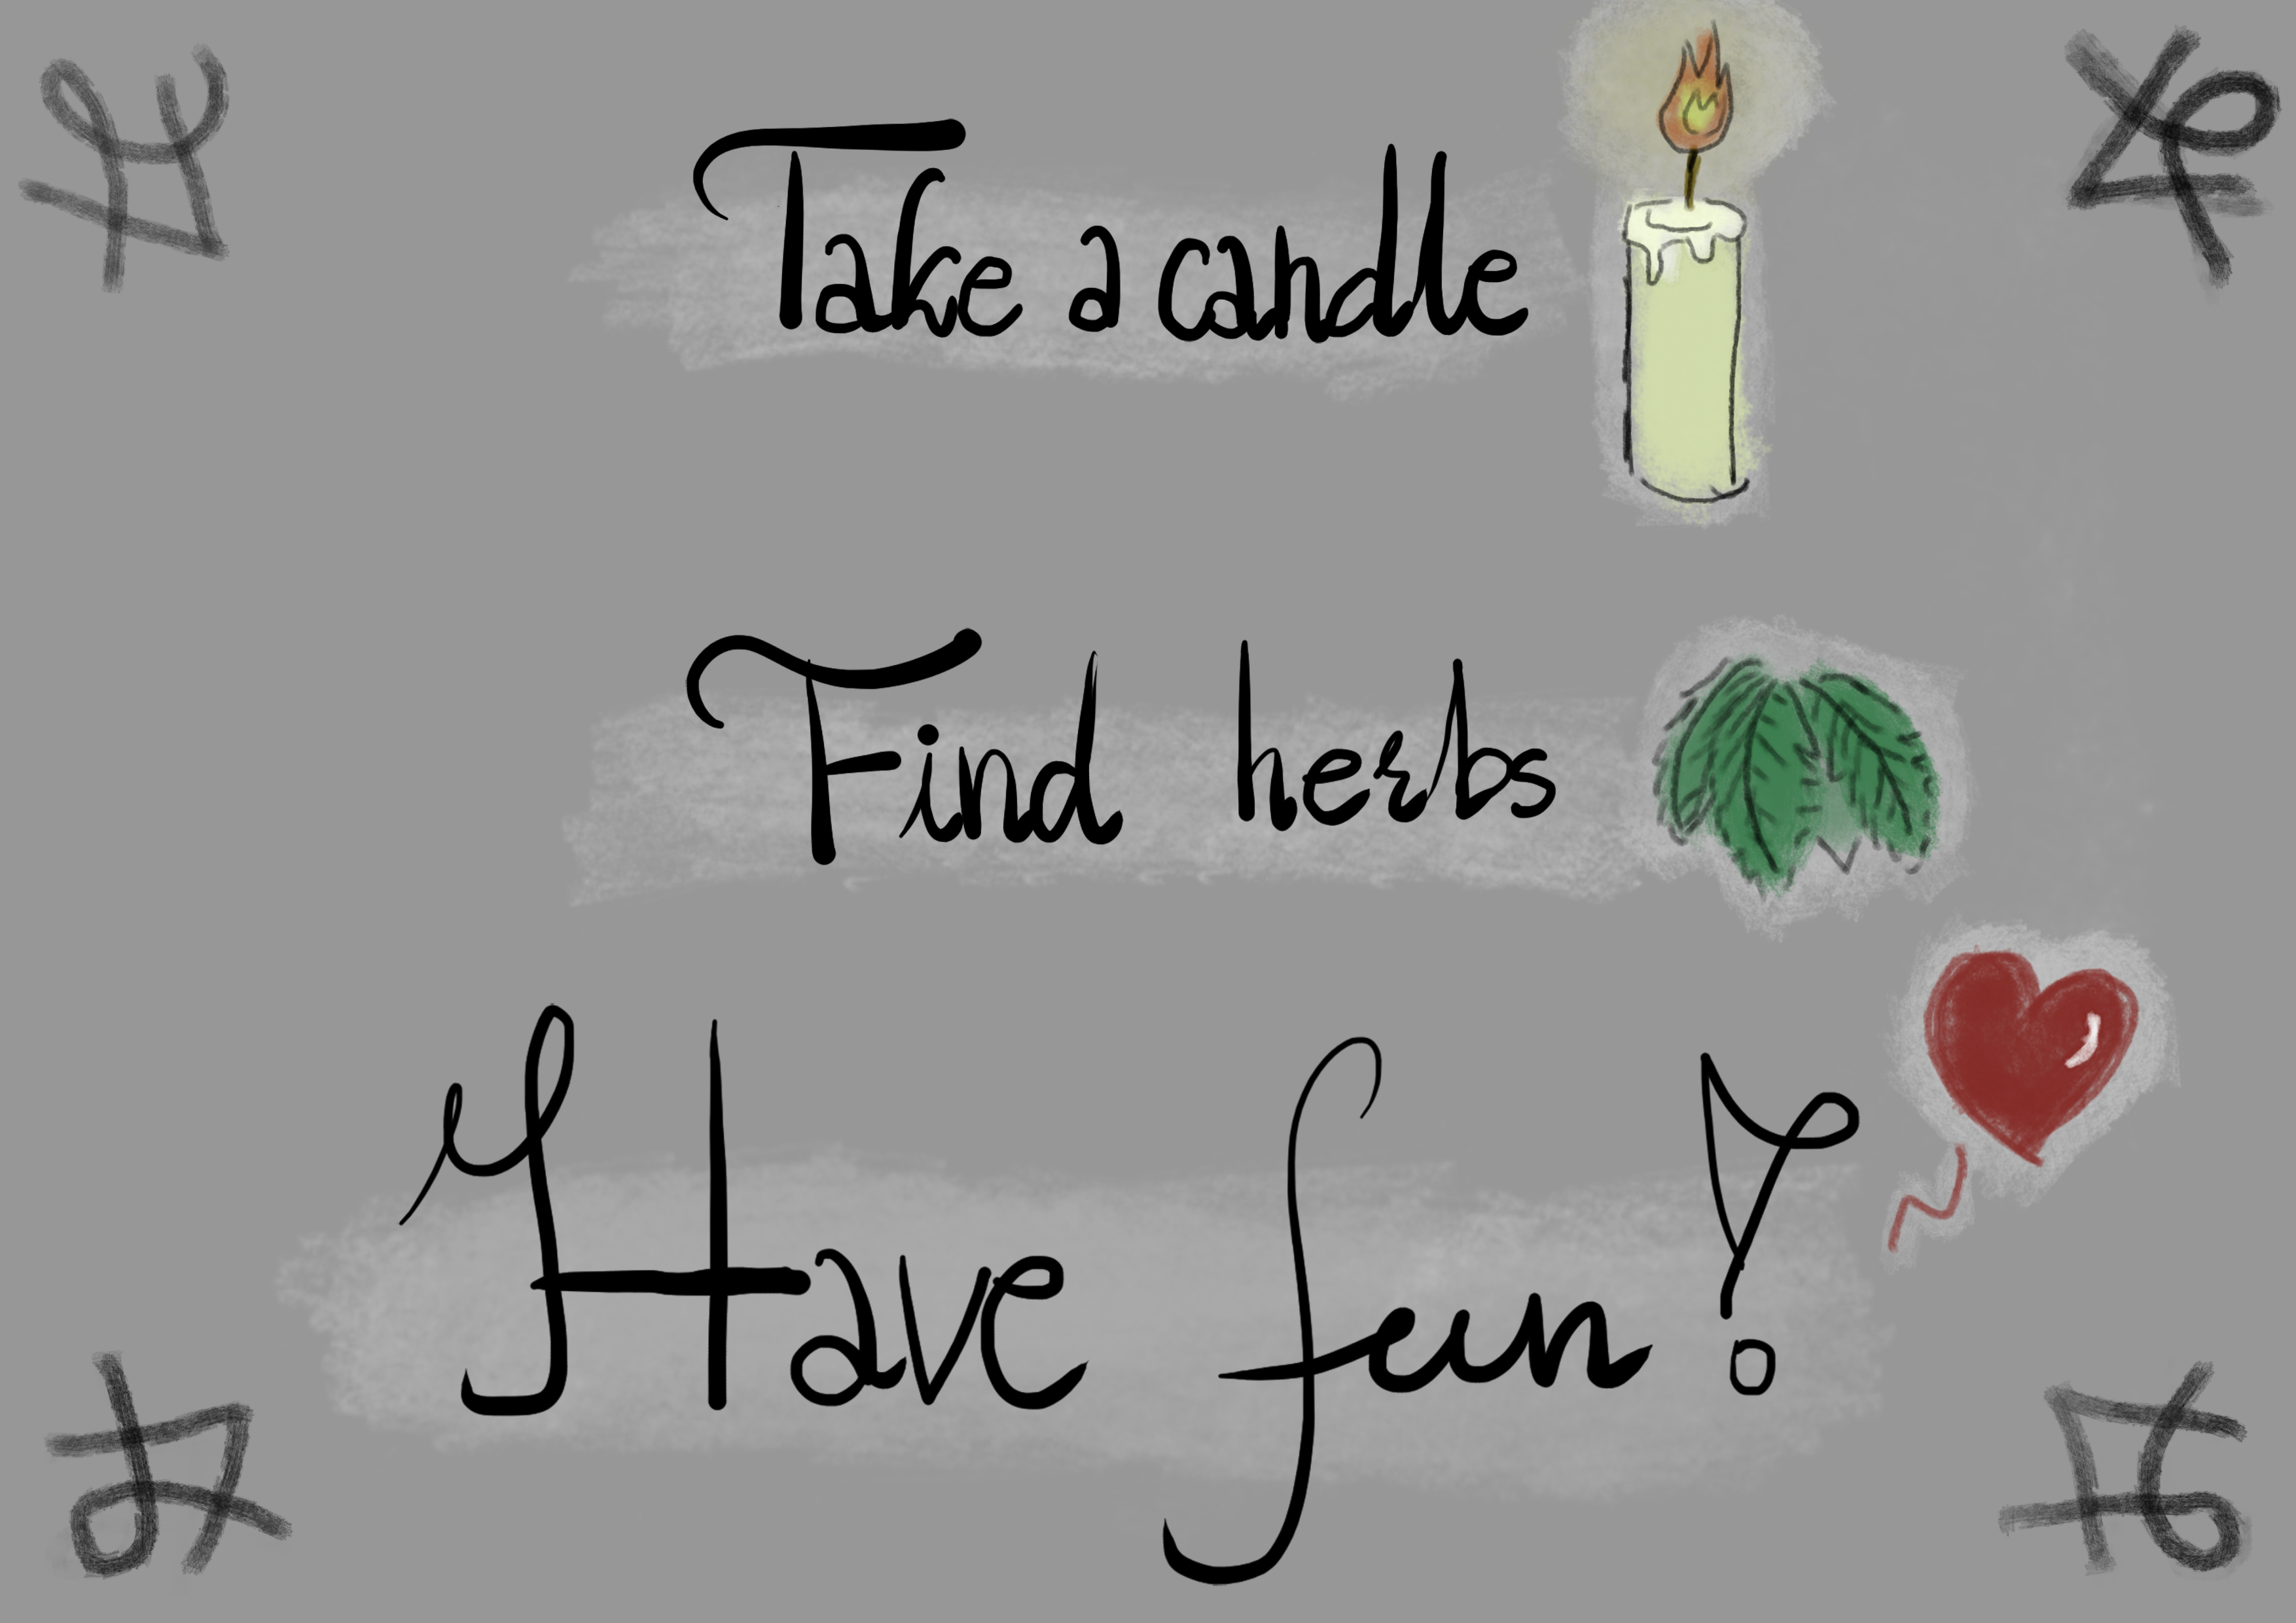 Take a candle
Find herbs
Have fun!